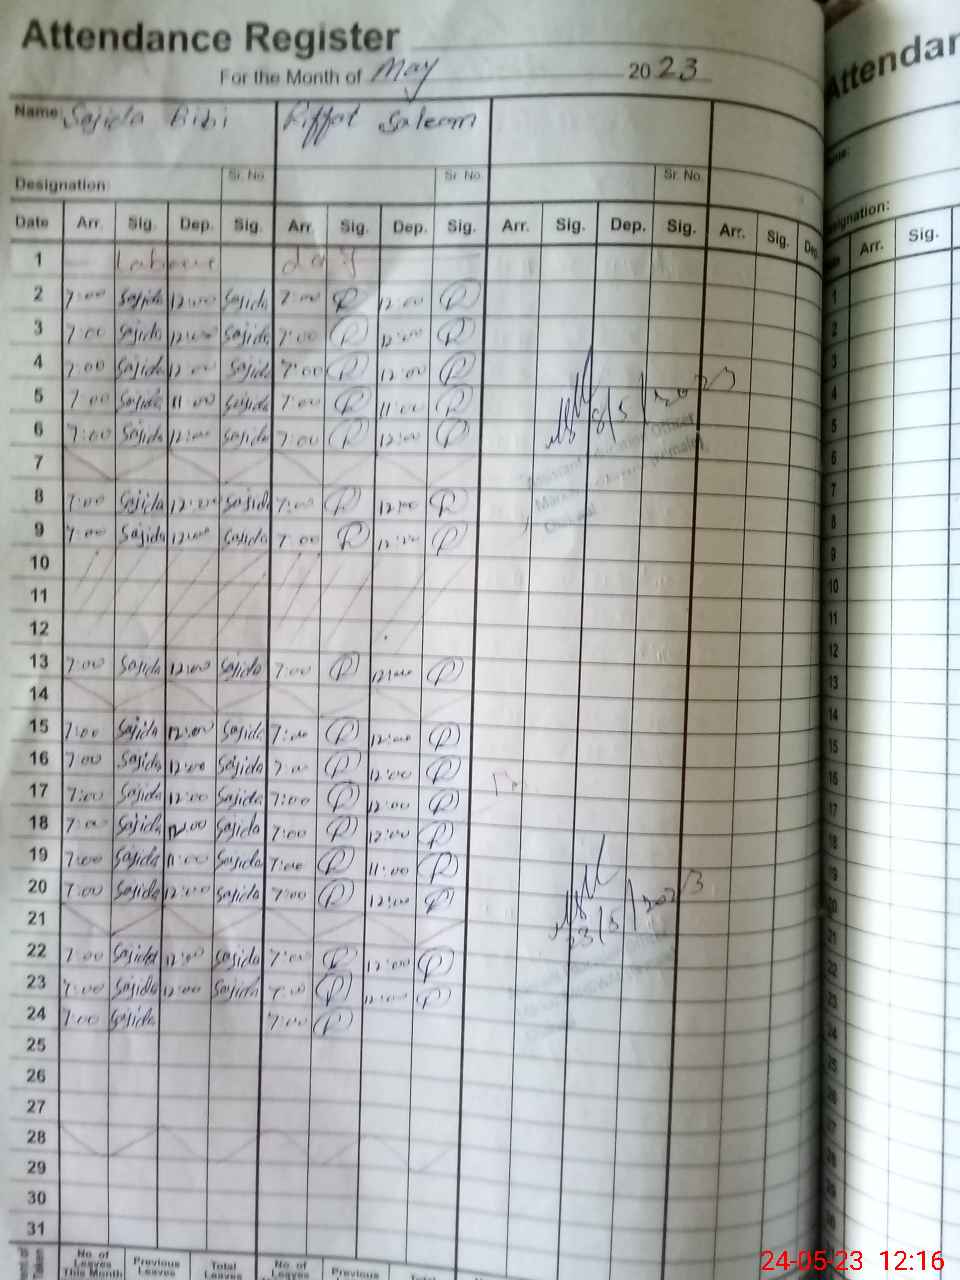 Attendance Register
For the Month of May 2023
Name: Sajida Bibi Riffat Saleem
Designation: Sr. No. Sr. No. Sr. No.
Date Arr. Sig. Dep. Sig. Arr. Sig. Dep. Sig. Arr. Sig. Dep. Sig. Arr. Sig. Dep
1 Labour day
2 7:00 Sajida 12:00 Sajida 7:00 R 12:00 R
3 7:00 Sajida 12:00 Sajida 7:00 R 12:00 R
4 7:00 Sajida 12:00 Sajida 7:00 R 12:00 R
5 7:00 Sajida 11:00 Sajida 7:00 R 11:00 R
6 7:00 Sajida 12:00 Sajida 7:00 R 12:00 R
8/5/2023
Assistant Education Officer
7
8 7:00 Sajida 12:00 Sajida 7:00 R 12:00 R
9 7:00 Sajida 12:00 Sajida 7:00 R 12:00 R
10
11
12
13 7:00 Sajida 12:00 Sajida 7:00 R 12:00 R
14
15 7:00 Sajida 12:00 Sajida 7:00 R 12:00 R
16 7:00 Sajida 12:00 Sajida 7:00 R 12:00 R
17 7:00 Sajida 12:00 Sajida 7:00 R 12:00 R
18 7:00 Sajida 12:00 Sajida 7:00 R 12:00 R
19 7:00 Sajida 11:00 Sajida 7:00 R 11:00 R
20 7:00 Sajida 12:00 Sajida 7:00 R 12:00 R
23/5/2023
21
22 7:00 Sajida 12:00 Sajida 7:00 R 12:00 R
23 7:00 Sajida 12:00 Sajida 7:00 R 12:00 R
24 7:00 Sajida 7:00 R
25
26
27
28
29
30
31
No. of Leaves This Month Previous Leaves Total Leaves No. of Leaves Previous
Attendar
Designation:
Arr. Sig.
24-05-23 12:16